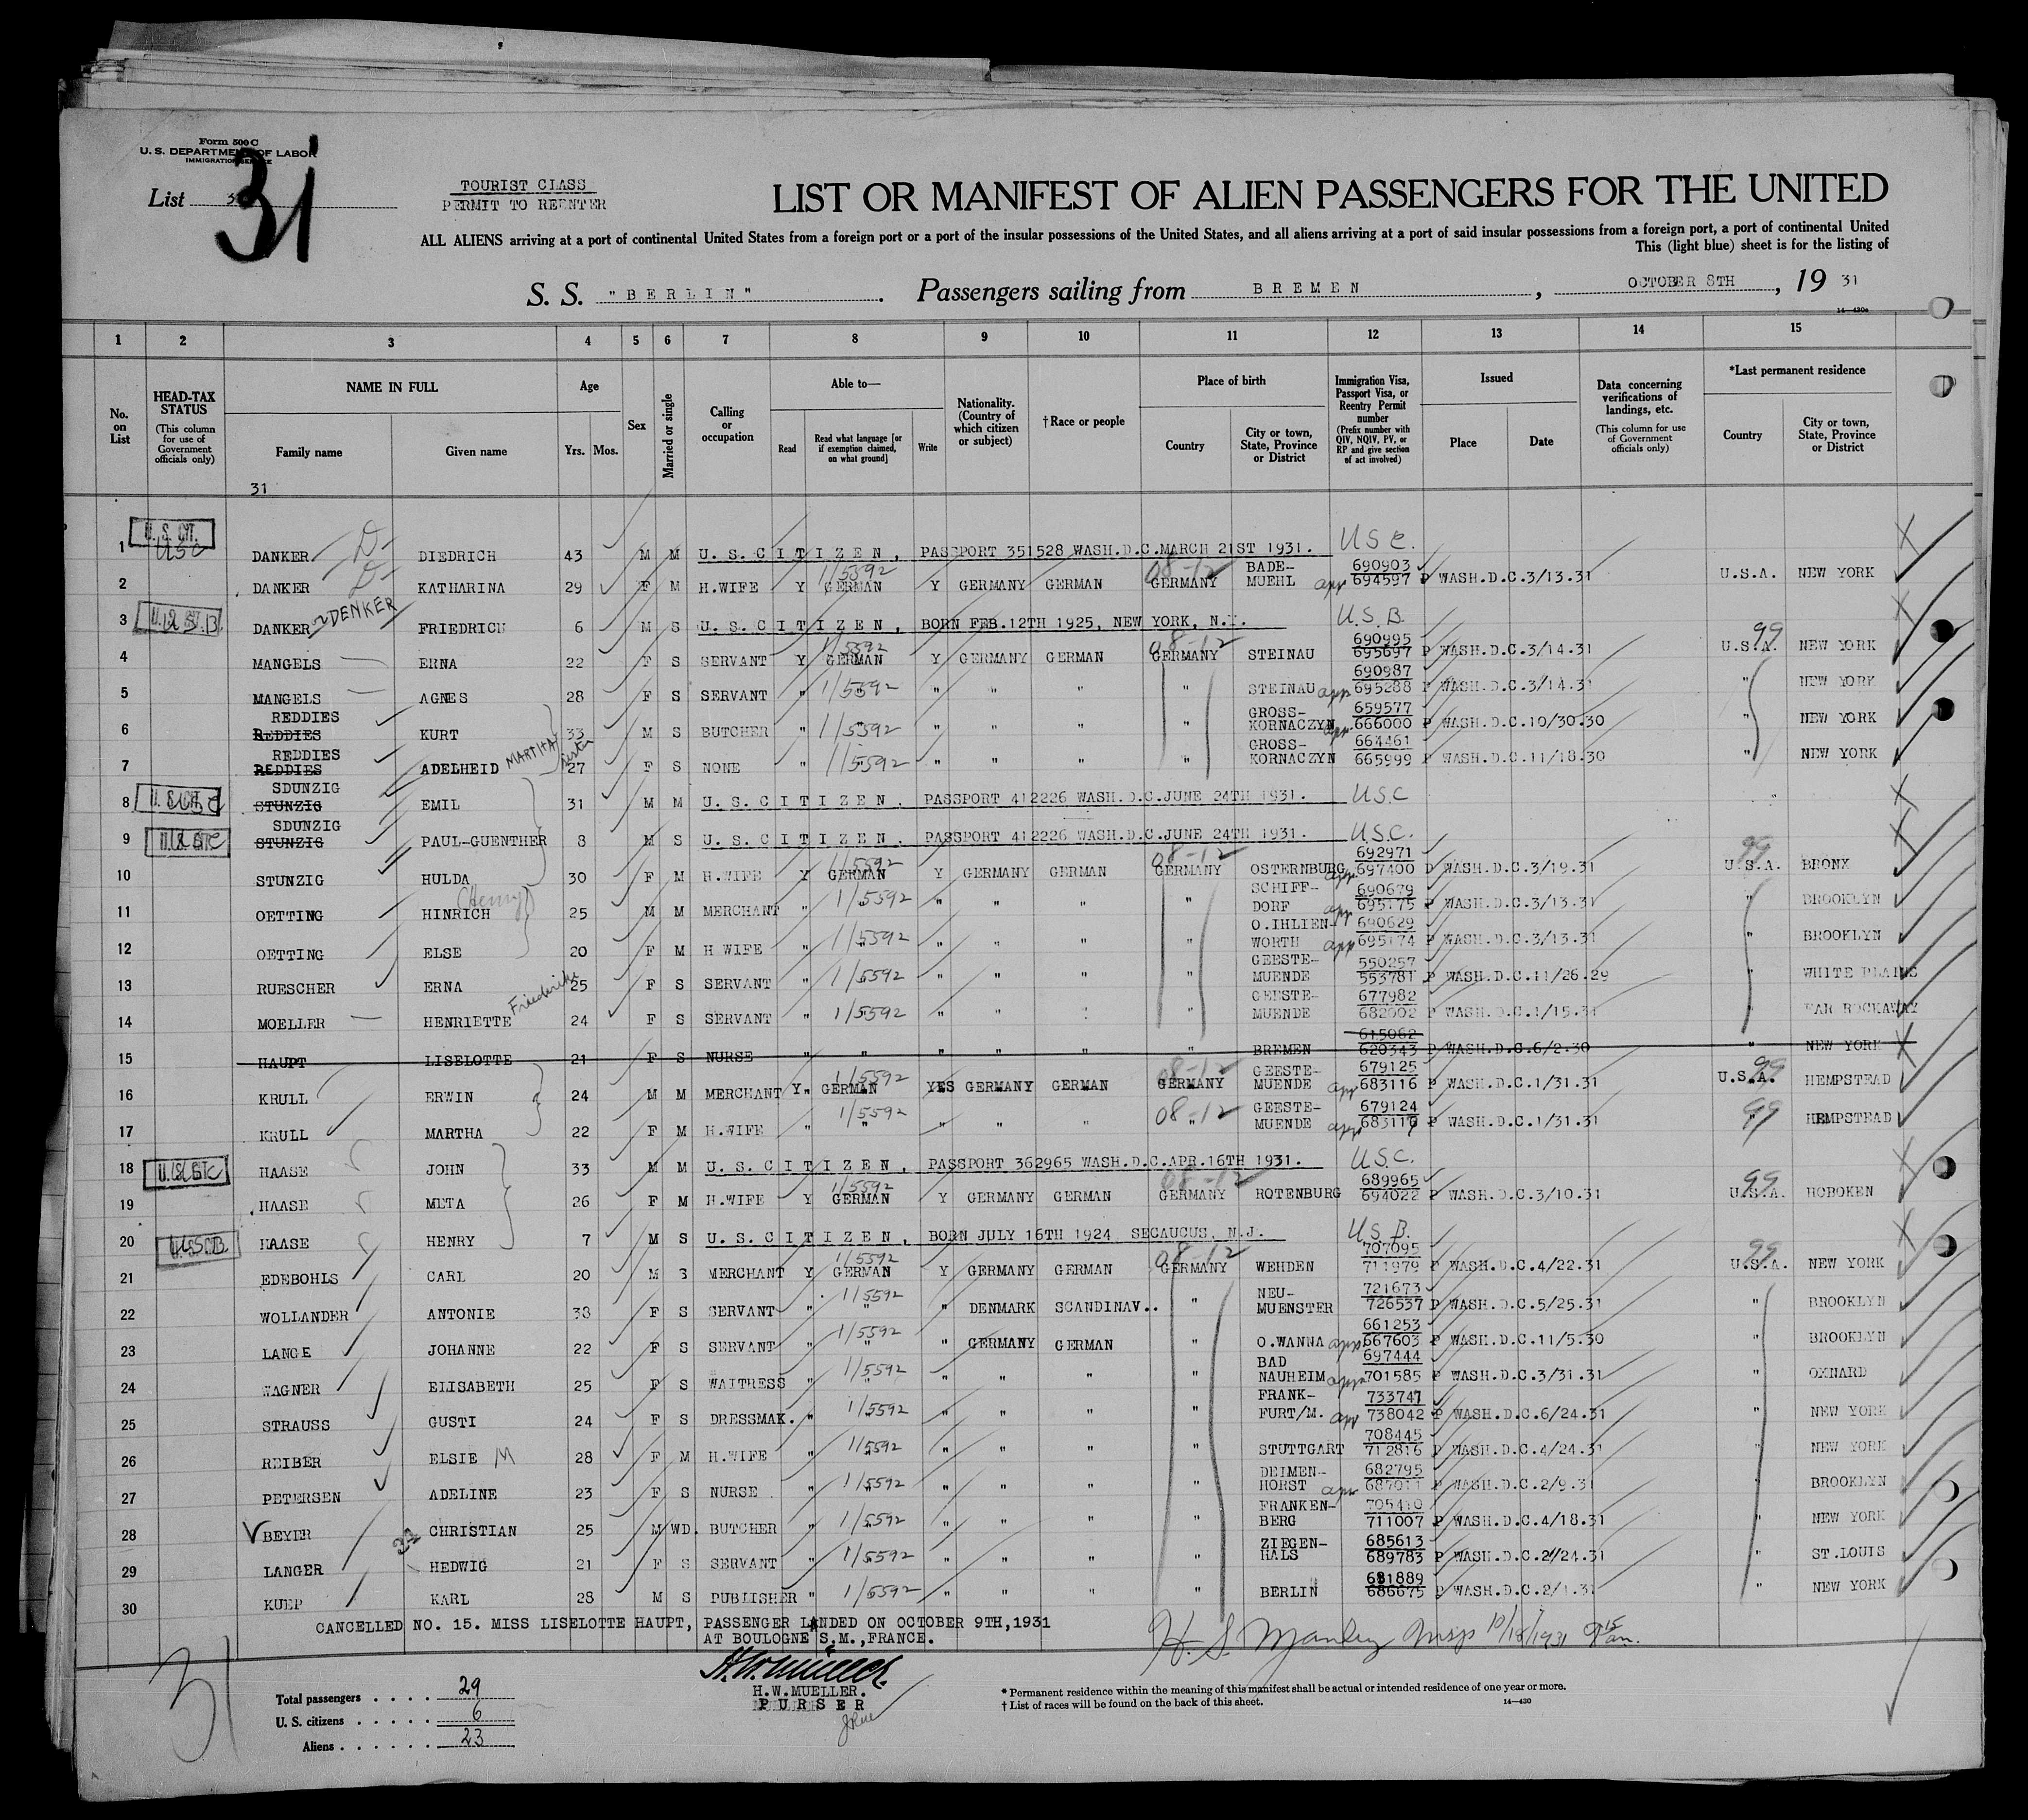 Form 500 C
U. S. DEPARTMENT OF LABOR
IMMIGRATION SERVICE
List 31
TOURIST CLASS
PERMIT TO REENTER
LIST OR MANIFEST OF ALIEN PASSENGERS FOR THE UNITED
ALL ALIENS arriving at a port of continental United States from a foreign port or a port of the insular possessions of the United States, and all aliens arriving at a port of said insular possessions from a foreign port, a port of continental United
This (light blue) sheet is for the listing of
S. S. "BERLIN". Passengers sailing from BREMEN, OCTOBER 8TH, 19 31
14—430a
1 2 3 4 5 6 7 8 9 10 11 12 13 14 15
No. on List
HEAD-TAX STATUS (This column for use of Government officials only)
NAME IN FULL Family name Given name
Age Yrs. Mos.
Sex
Married or single
Calling or occupation
Able to— Read Read what language [or if exemption claimed, on what ground] Write
Nationality. (Country of which citizen or subject)
†Race or people
Place of birth Country City or town, State, Province or District
Immigration Visa, Passport Visa, or Reentry Permit number (Prefix number with QIV, NQIV, PV, or RP and give section of act involved)
Issued Place Date
Data concerning verifications of landings, etc. (This column for use of Government officials only)
*Last permanent residence Country City or town, State, Province or District
31
1 U.S. CIT. USC DANKER D- DIEDRICH 43 M M U.S.CITIZEN, PASSPORT 351528 WASH.D.C.MARCH 21ST 1931. USC.
2 DANKER D- KATHARINA 29 F M H.WIFE Y GERMAN 1/5592 Y GERMANY GERMAN GERMANY 08-12 BADE-MUEHL app 690903 694597 P WASH.D.C.3/13.31 U.S.A. NEW YORK
3 DANKER DENKER FRIEDRICH 6 M S U.S.CITIZEN, BORN FEB.12TH 1925, NEW YORK, N.Y. U.S.B.
4 MANGELS ERNA 22 F S SERVANT Y GERMAN 1/5592 Y GERMANY GERMAN GERMANY 08-12 STEINAU 690995 695697 P WASH.D.C.3/14.31 U.S.A. 99 NEW YORK
5 MANGELS AGNES 28 F S SERVANT " 1/5592 " " " " STEINAU app 690987 695288 P WASH.D.C.3/14.31 " NEW YORK
6 REDDIES REDDIES KURT 33 M S BUTCHER " 1/5592 " " " " GROSS-KORNACZYN app. 659577 666000 P WASH.D.C.10/30.30 " NEW YORK
7 REDDIES REDDIES ADELHEID MARTHA sister 27 F S NONE " 1/5592 " " " " GROSS-KORNACZYN 664461 665999 P WASH.D.C.11/18.30 " NEW YORK
8 SDUNZIG STUNZIG EMIL 31 M M U.S.CITIZEN. PASSPORT 412226 WASH.D.C.JUNE 24TH 1931. USC
9 SDUNZIG STUNZIG PAUL-GUENTHER 8 M S U.S.CITIZEN. PASSPORT 412226 WASH.D.C.JUNE 24TH 1931. U.S.C.
10 STUNZIG HULDA 30 F M H.WIFE Y GERMAN 1/5592 Y GERMANY GERMAN GERMANY 08-12 OSTERNBURG app. 692971 697400 P WASH.D.C.3/19.31 U.S.A. 99 BRONX
11 OETTING HINRICH (Henry) 25 M M MERCHANT " 1/5592 " " " " SCHIFF-DORF app 690679 695175 P WASH.D.C.3/13.31 " BROOKLYN
12 OETTING ELSE 20 F M H WIFE " 1/5592 " " " " O.IHLIEN-WORTH app 690629 695174 P WASH.D.C.3/13.31 " BROOKLYN
13 RUESCHER ERNA 25 F S SERVANT " 1/5592 " " " " GEESTE-MUENDE 550257 553781 P WASH.D.C.11/26.29 " WHITE PLAINS
14 MOELLER HENRIETTE Friederike 24 F S SERVANT " 1/5592 " " " " GEESTE-MUENDE 677982 682002 P WASH.D.C.1/15.31 " FAR ROCKAWAY
15 HAUPT LISELOTTE 21 F S NURSE " " " " " " BREMEN 615062 620343 P WASH.D.C.6/2.30 " NEW YORK
16 KRULL ERWIN 24 M M MERCHANT Y GERMAN 1/5592 YES GERMANY GERMAN GERMANY 08-12 GEESTE-MUENDE app 679125 683116 P WASH.D.C.1/31.31 U.S.A. 99 HEMPSTEAD
17 KRULL MARTHA 22 F M H.WIFE " 1/5592 " " " 08-12 GEESTE-MUENDE app 679124 683117 P WASH.D.C.1/31.31 99 HEMPSTEAD
18 HAASE JOHN 33 M M U.S.CITIZEN, PASSPORT 362965 WASH.D.C.APR.16TH 1931. U.S.C.
19 HAASE META 26 F M H.WIFE Y GERMAN 1/5592 Y GERMANY GERMAN GERMANY 08-12 ROTENBURG 689965 694022 P WASH.D.C.3/10.31 U.S.A. 99 HOBOKEN
20 HAASE HENRY 7 M S U.S.CITIZEN, BORN JULY 16TH 1924 SECAUCUS, N.J. U.S.B.
21 EDEBOHLS CARL 20 M S MERCHANT Y GERMAN 1/5592 Y GERMANY GERMAN GERMANY 08-12 WEHDEN 707095 711979 P WASH.D.C.4/22.31 U.S.A. 99 NEW YORK
22 WOLLANDER ANTONIE 38 F S SERVANT " 1/5592 " DENMARK SCANDINAV.. " NEU-MUENSTER 721673 726537 P WASH.D.C.5/25.31 " BROOKLYN
23 LANGE JOHANNE 22 F S SERVANT " 1/5592 " GERMANY GERMAN " O.WANNA app 661253 667603 P WASH.D.C.11/5.30 " BROOKLYN
24 WAGNER ELISABETH 25 F S WAITRESS " 1/5592 " " " " BAD NAUHEIM app 697444 701585 P WASH.D.C.3/31.31 " OXNARD
25 STRAUSS GUSTI 24 F S DRESSMAK. " 1/5592 " " " " FRANK-FURT/M. app 733747 738042 P WASH.D.C.6/24.31 " NEW YORK
26 REIBER ELSIE M 28 F M H.WIFE " 1/5592 " " " " STUTTGART 708445 712816 P WASH.D.C.4/24.31 " NEW YORK
27 PETERSEN ADELINE 23 F S NURSE " 1/5592 " " " " DEIMEN-HORST app 682795 687011 P WASH.D.C.2/9.31 " BROOKLYN
28 BEYER CHRISTIAN 25 M WD. BUTCHER " 1/5592 " " " " FRANKEN-BERG 705410 711007 P WASH.D.C.4/18.31 " NEW YORK
29 LANGER HEDWIG 21 F S SERVANT " 1/5592 " " " " ZIEGEN-HALS 685613 689783 P WASH.D.C.2/24.31 " ST.LOUIS
30 KUEP KARL 28 M S PUBLISHER " 1/5592 " " " " BERLIN 681889 686675 P WASH.D.C.2/1.31 " NEW YORK
CANCELLED NO. 15. MISS LISELOTTE HAUPT, PASSENGER LANDED ON OCTOBER 9TH,1931
AT BOULOGNE S.M.,FRANCE.
H. S. Manley Insp 10/18/1931 9 15 am.
31
H.W.MUELLER.
PURSER
Total passengers . . . . 29
U. S. citizens . . . . . 6
Aliens . . . . . . 23
* Permanent residence within the meaning of this manifest shall be actual or intended residence of one year or more.
† List of races will be found on the back of this sheet.
14—430